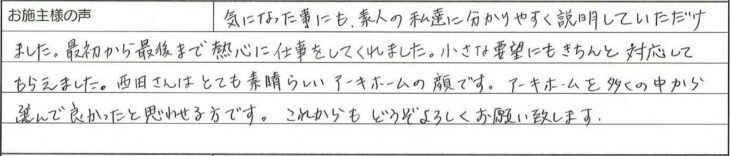 お施主様の声 気になった事にも、素人の私達に分かりやすく説明していただけ
ました。最初から最後まで熱心に仕事をしてくれました。小さな要望にもきちんと対応して
もらえました。西田さんはとても素晴らしいアーキホームの顔です。アーキホームを多くの中から
選んで良かったと思わせる方です。これからもどうぞよろしくお願い致します。